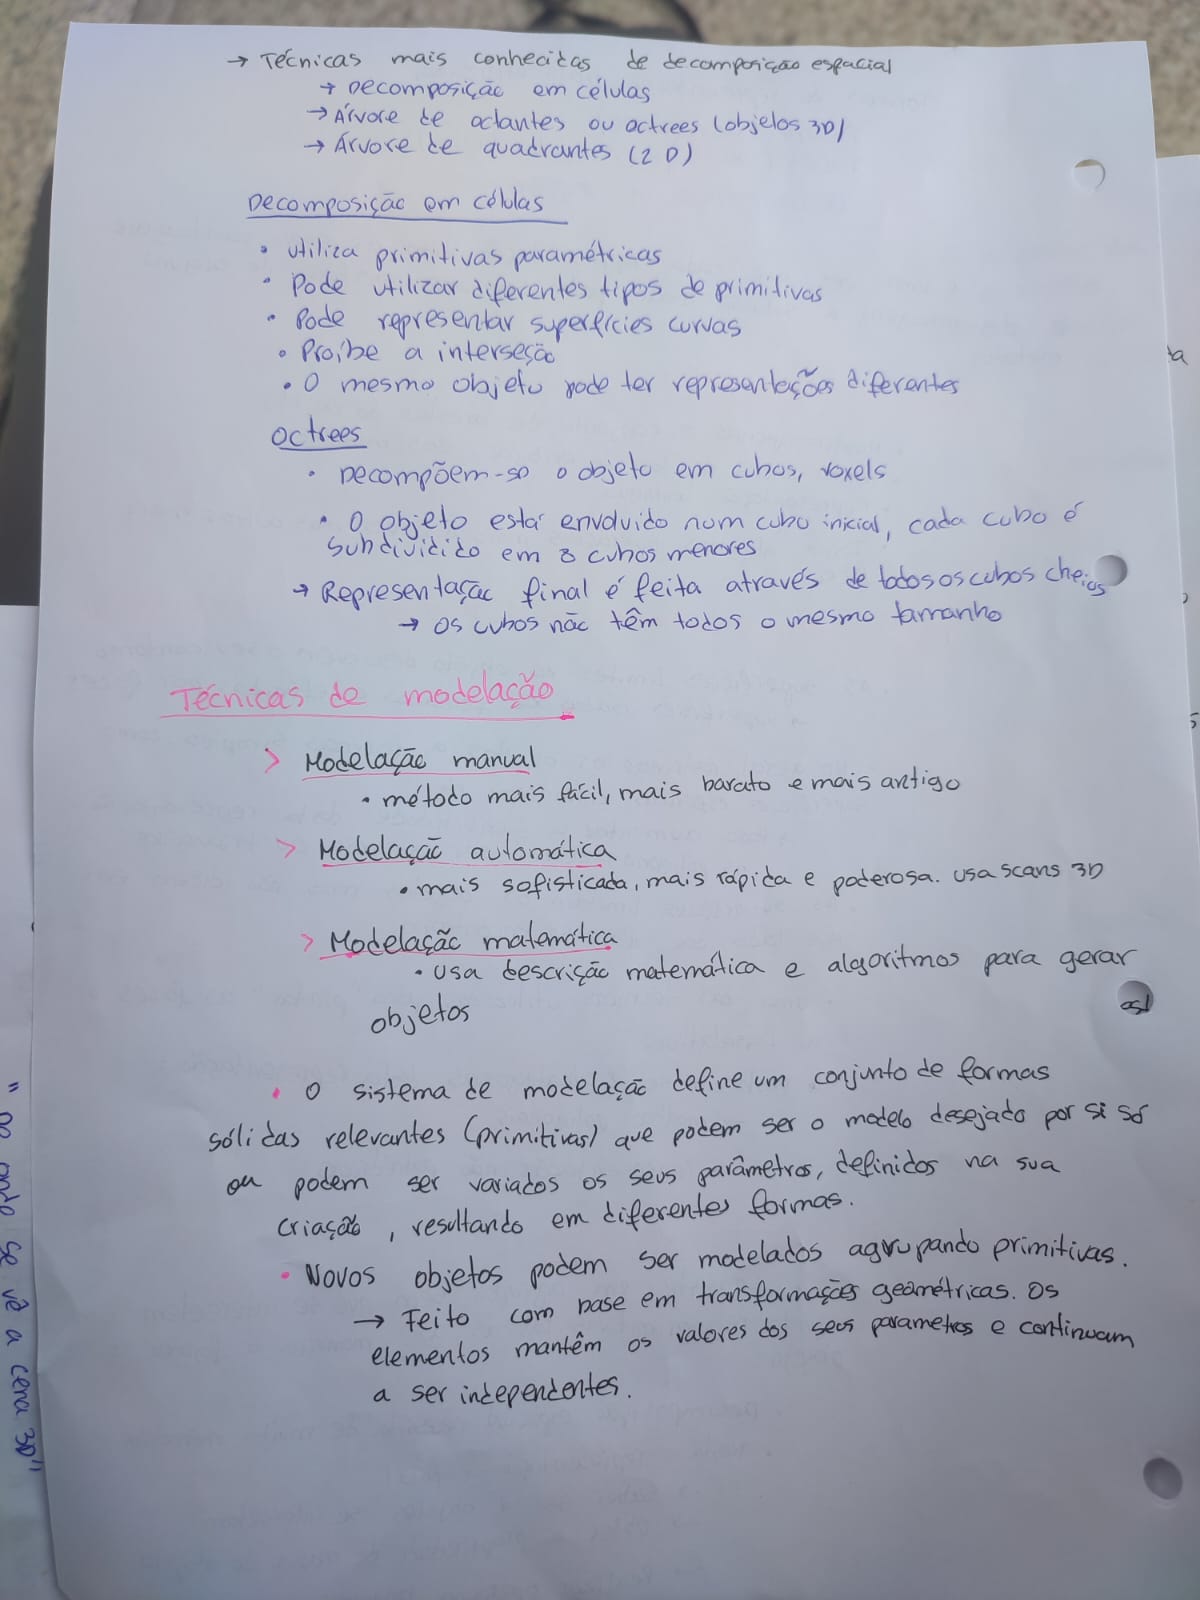 → Técnicas mais conhecidas de decomposição espacial
→ Decomposição em células
→ Árvore de octantes ou octrees (objetos 3D)
→ Árvore de quadrantes (2D)
Decomposição em células
• utiliza primitivas paramétricas
• Pode utilizar diferentes tipos de primitivas
• Pode representar superfícies curvas
• Proíbe a interseção
• O mesmo objeto pode ter representações diferentes
Octrees
• Decompõem-se o objeto em cubos, voxels
• O objeto está envolvido num cubo inicial, cada cubo é
subdividido em 8 cubos menores
→ Representação final é feita através de todos os cubos cheios
→ Os cubos não têm todos o mesmo tamanho
Técnicas de modelação
> Modelação manual
• método mais fácil, mais barato e mais antigo
> Modelação automática
• mais sofisticada, mais rápida e poderosa. Usa scans 3D
> Modelação matemática
• Usa descrição matemática e algoritmos para gerar
objetos
• O sistema de modelação define um conjunto de formas
sólidas relevantes (primitivas) que podem ser o modelo desejado por si só
ou podem ser variados os seus parâmetros, definidos na sua
criação, resultando em diferentes formas.
• Novos objetos podem ser modelados agrupando primitivas.
→ Feito com base em transformações geométricas. Os
elementos mantêm os valores dos seus parametros e continuam
a ser independentes.
se vê a cena 3D"